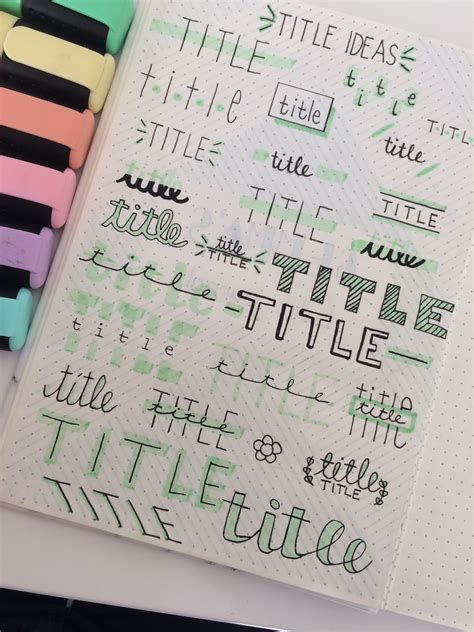 TITLE IDEAS
TITLE
title
title
title
TITLE
TITLE
title
title
TITLE
TITLE
title
title
title
title
TITLE
TITLE
title
title
TITLE
title
title
title
TITLE
title
TITLE
title
TITLE
title
TITLE
title
TITLE